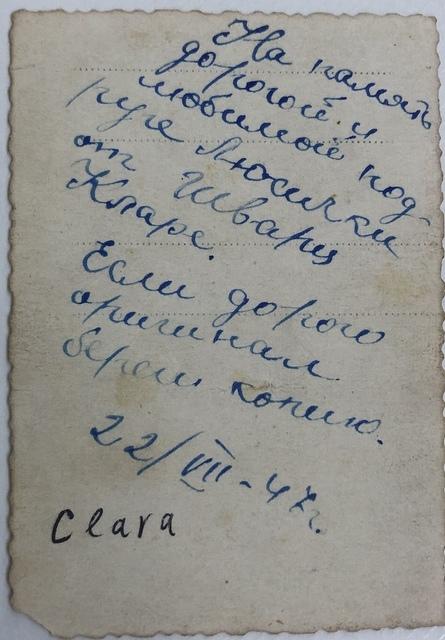 На память
дорогой и
любимой под-
руге Люсички
от Шварц
Кларе.
Если дорого
оригинал
береги копию.
22/VIII-47г.
Clara